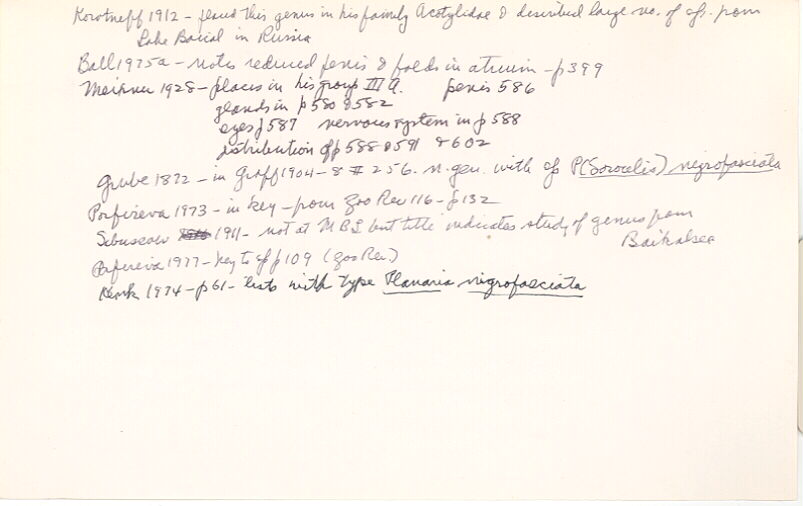 Korotneff 1912 - placed this genus in his family Acotylidae & described large no. of sps. from
Lake Baical in Russia
Ball 1975a - notes reduced penis & folds in atrium - p399
Meixner 1928 - places in his group III A. penis 586
glands in p 580 & 582
eyes p 587 nervous system in p 588
distribution of p 588 & 591 & 602
Grube 1872 - in Graff 1904-8 II 256. n. gen. with sp P(Sorocelis) nigrofasciata
Porfireva 1973 - in key - from Zoo Rec 116 - p132
Sibussow 1911 - not at MBL but title indicates study of genus from
Baikalsee
Porfireva 1977 - key to sp p109 (Zoo Rec.)
Kenk 1974 - p61 - lists with type Planaria nigrofasciata